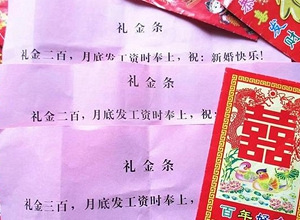 礼金条
礼金三百，月底发工资时奉上，祝：新婚快乐！
礼金条
礼金二百，月底发工资时奉上，祝：
礼金条
礼金三百，月底发工资时奉上，
囍
百年好合